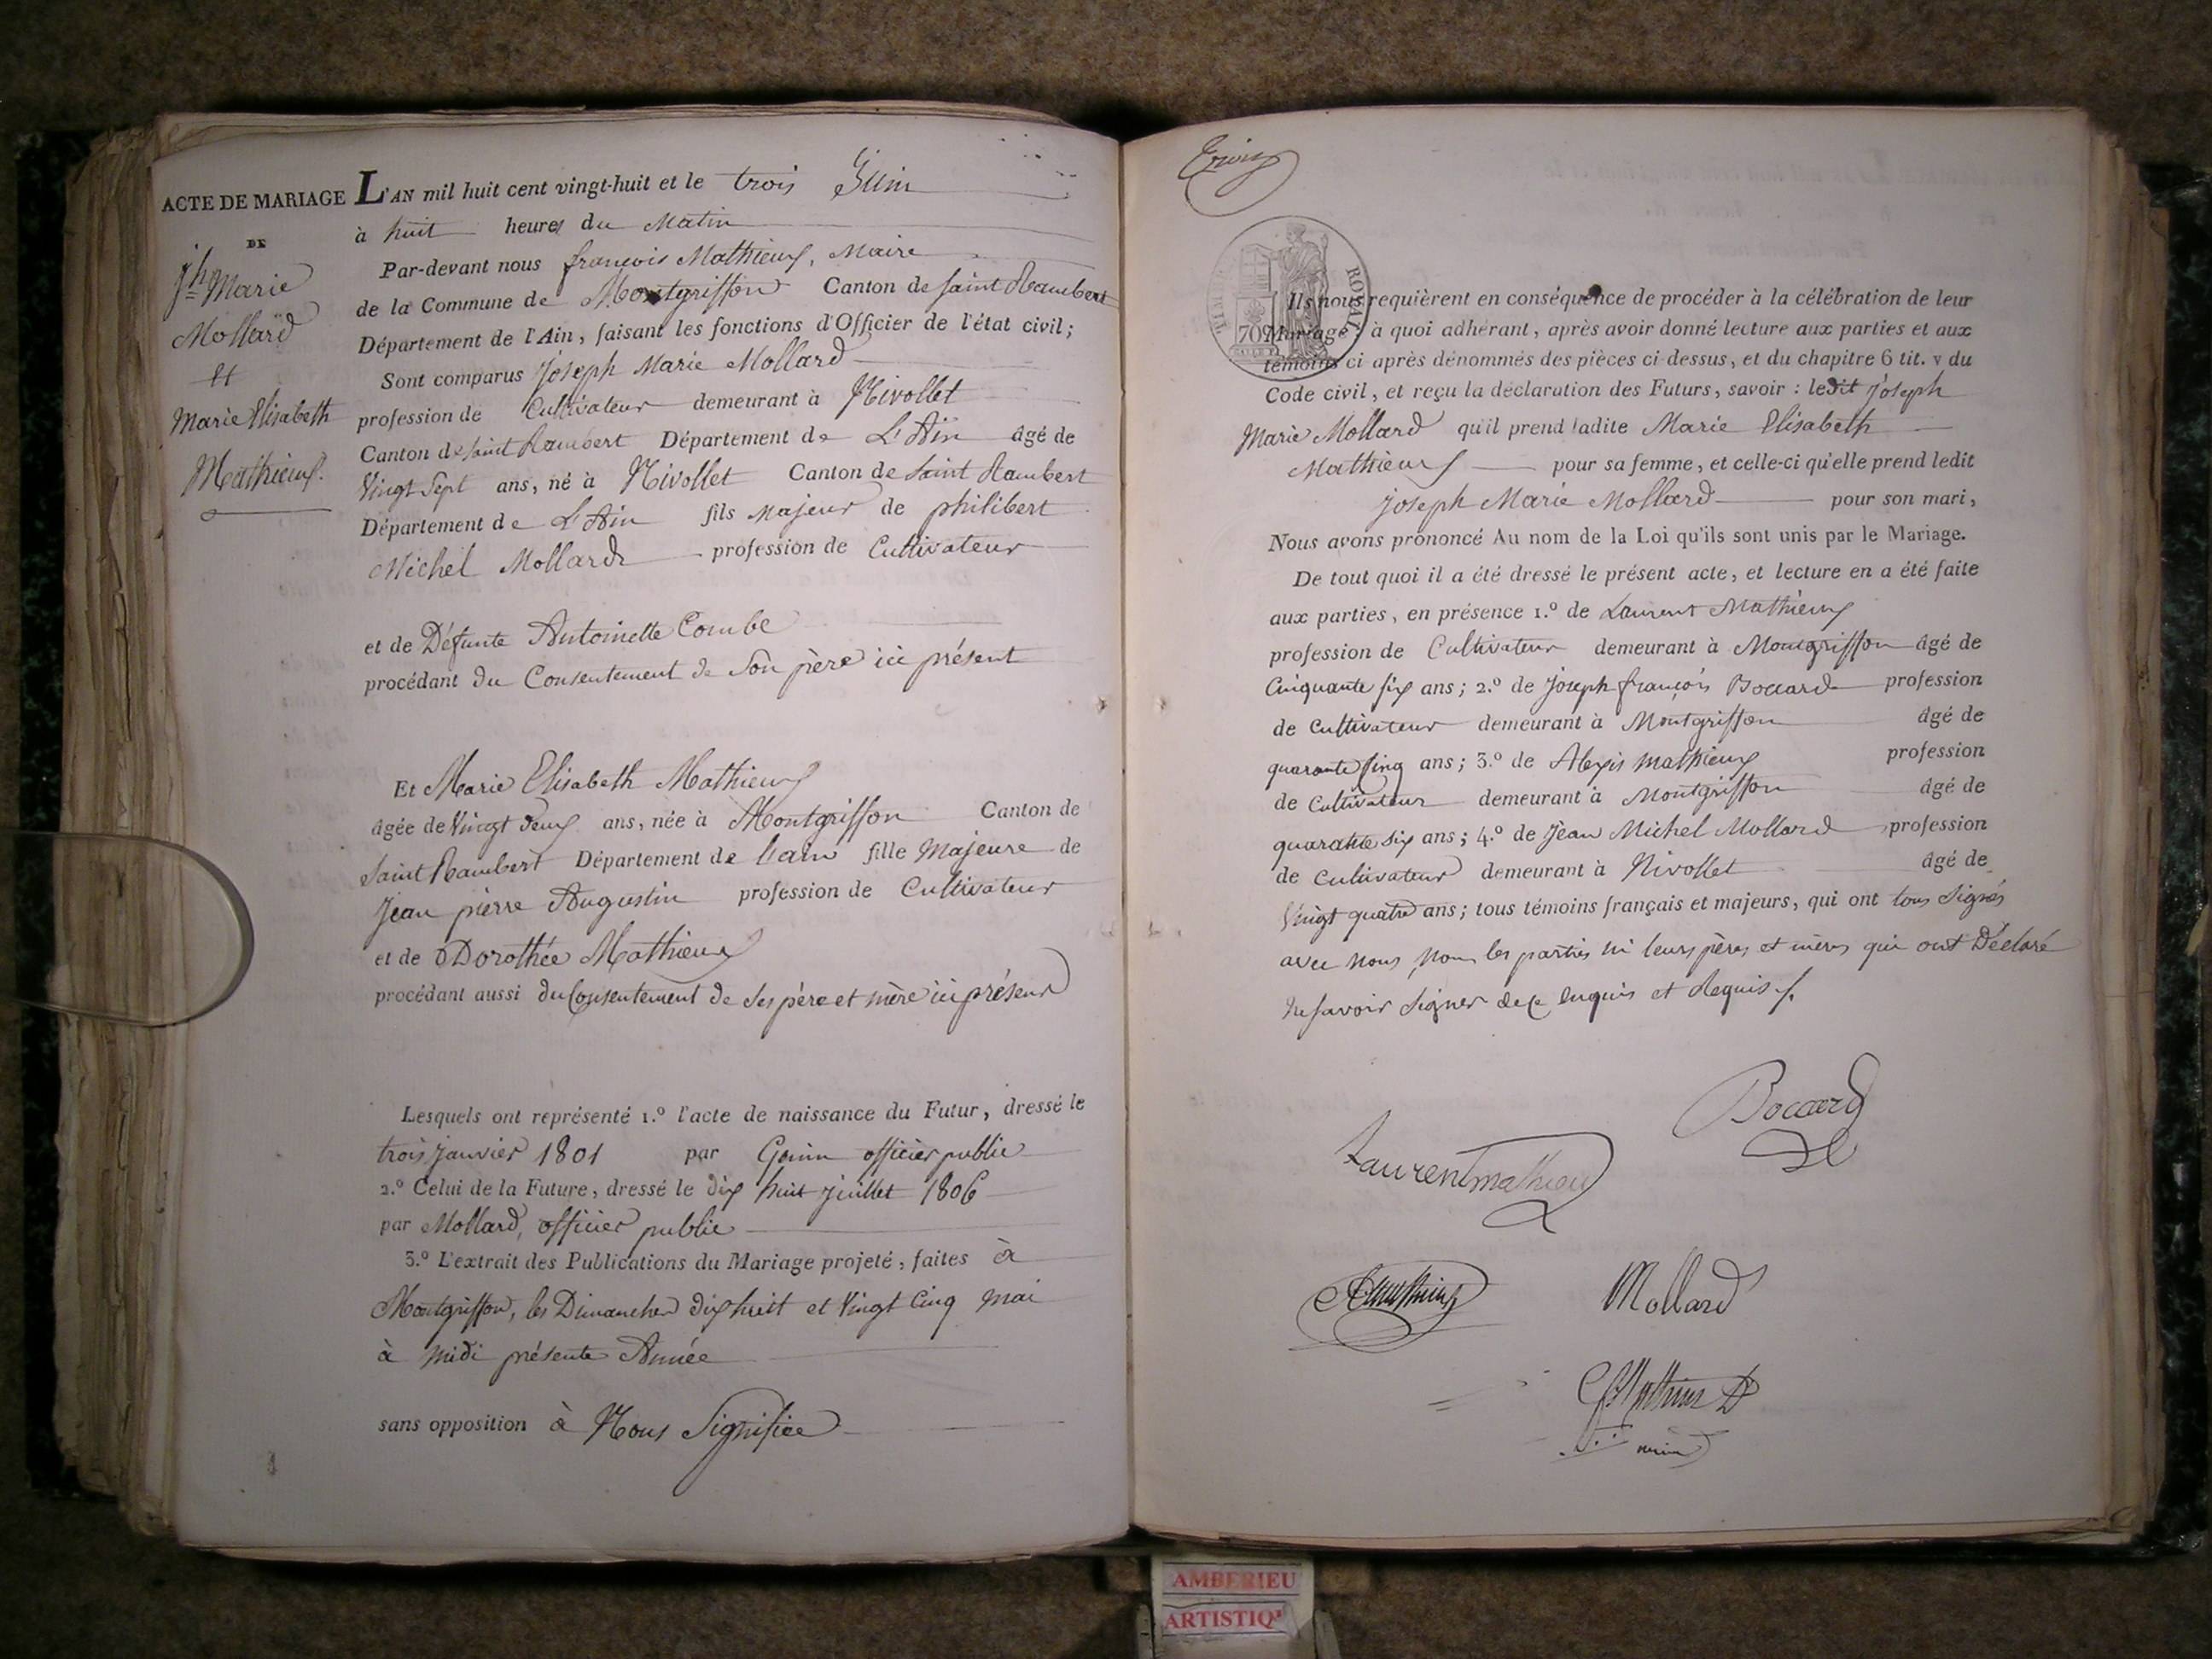 ACTE DE MARIAGE
DE
Jh Marie
Mollard
et
Marie Elisabeth
Mathieux.
L'AN mil huit cent vingt-huit et le trois Juin
à huit heures du Matin
Par-devant nous françois Mathieux, Maire
de la Commune de Montgriffon Canton de Saint Rambert
Département de l'Ain, faisant les fonctions d'Officier de l'état civil;
Sont comparus Joseph Marie Mollard
profession de Cultivateur demeurant à Nivollet
Canton de Saint Rambert Département de L'Ain âgé de
Vingt Sept ans, né à Nivollet Canton de Saint Rambert
Département de L'Ain fils Majeur de philibert
Michel Mollard profession de Cultivateur
et de Défunte Antoinette Combe
procédant du Consentement de Son père ici présent
Et Marie Elisabeth Mathieux
âgée de Vingt Deux ans, née à Montgriffon Canton de
Saint Rambert Département de l'ain fille Majeure de
Jean pierre Augustin profession de Cultivateur
et de Dorothée Mathieux
procédant aussi du Consentement de Ses père et mère ici présens
Lesquels ont représenté 1.º l'acte de naissance du Futur, dressé le
trois Janvier 1801 par officier public
2.º Celui de la Future, dressé le dix huit juillet 1806
par Mollard, officier public
3.º L'extrait des Publications du Mariage projeté, faites à
Montgriffon, les Dimanches dix huit et Vingt Cinq mai
à midi présente Année
sans opposition à Nous Signifiée
TIMBRE ROYAL
70
Ils nous requièrent en conséquence de procéder à la célébration de leur
Mariage; à quoi adhérant, après avoir donné lecture aux parties et aux
témoins ci-après dénommés des pièces ci-dessus, et du chapitre 6 tit. v du
Code civil, et reçu la déclaration des Futurs, savoir : ledit joseph
Marie Mollard qu'il prend ladite Marie Elisabeth
Mathieux pour sa femme, et celle-ci qu'elle prend ledit
joseph Marie Mollard pour son mari,
Nous avons prononcé Au nom de la Loi qu'ils sont unis par le Mariage.
De tout quoi il a été dressé le présent acte, et lecture en a été faite
aux parties, en présence 1.º de Laurent Mathieux
profession de Cultivateur demeurant à Montgriffon âgé de
Cinquante six ans; 2.º de Joseph françois Boccard profession
de Cultivateur demeurant à Montgriffon âgé de
quarante Cinq ans; 3.º de Alexis mathieux profession
de Cultivateur demeurant à Montgriffon âgé de
quarante six ans; 4.º de Jean Michel Mollard profession
de Cultivateur demeurant à Nivollet âgé de
Vingt quatre ans; tous témoins français et majeurs, qui ont tous Signés
avec nous, non les parties ni leurs pères et mères qui ont Déclaré
ne savoir Signer de ce enquis et Requis
Boccard
Laurent mathieu
Mollard
AMBERIEU
ARTISTIQ